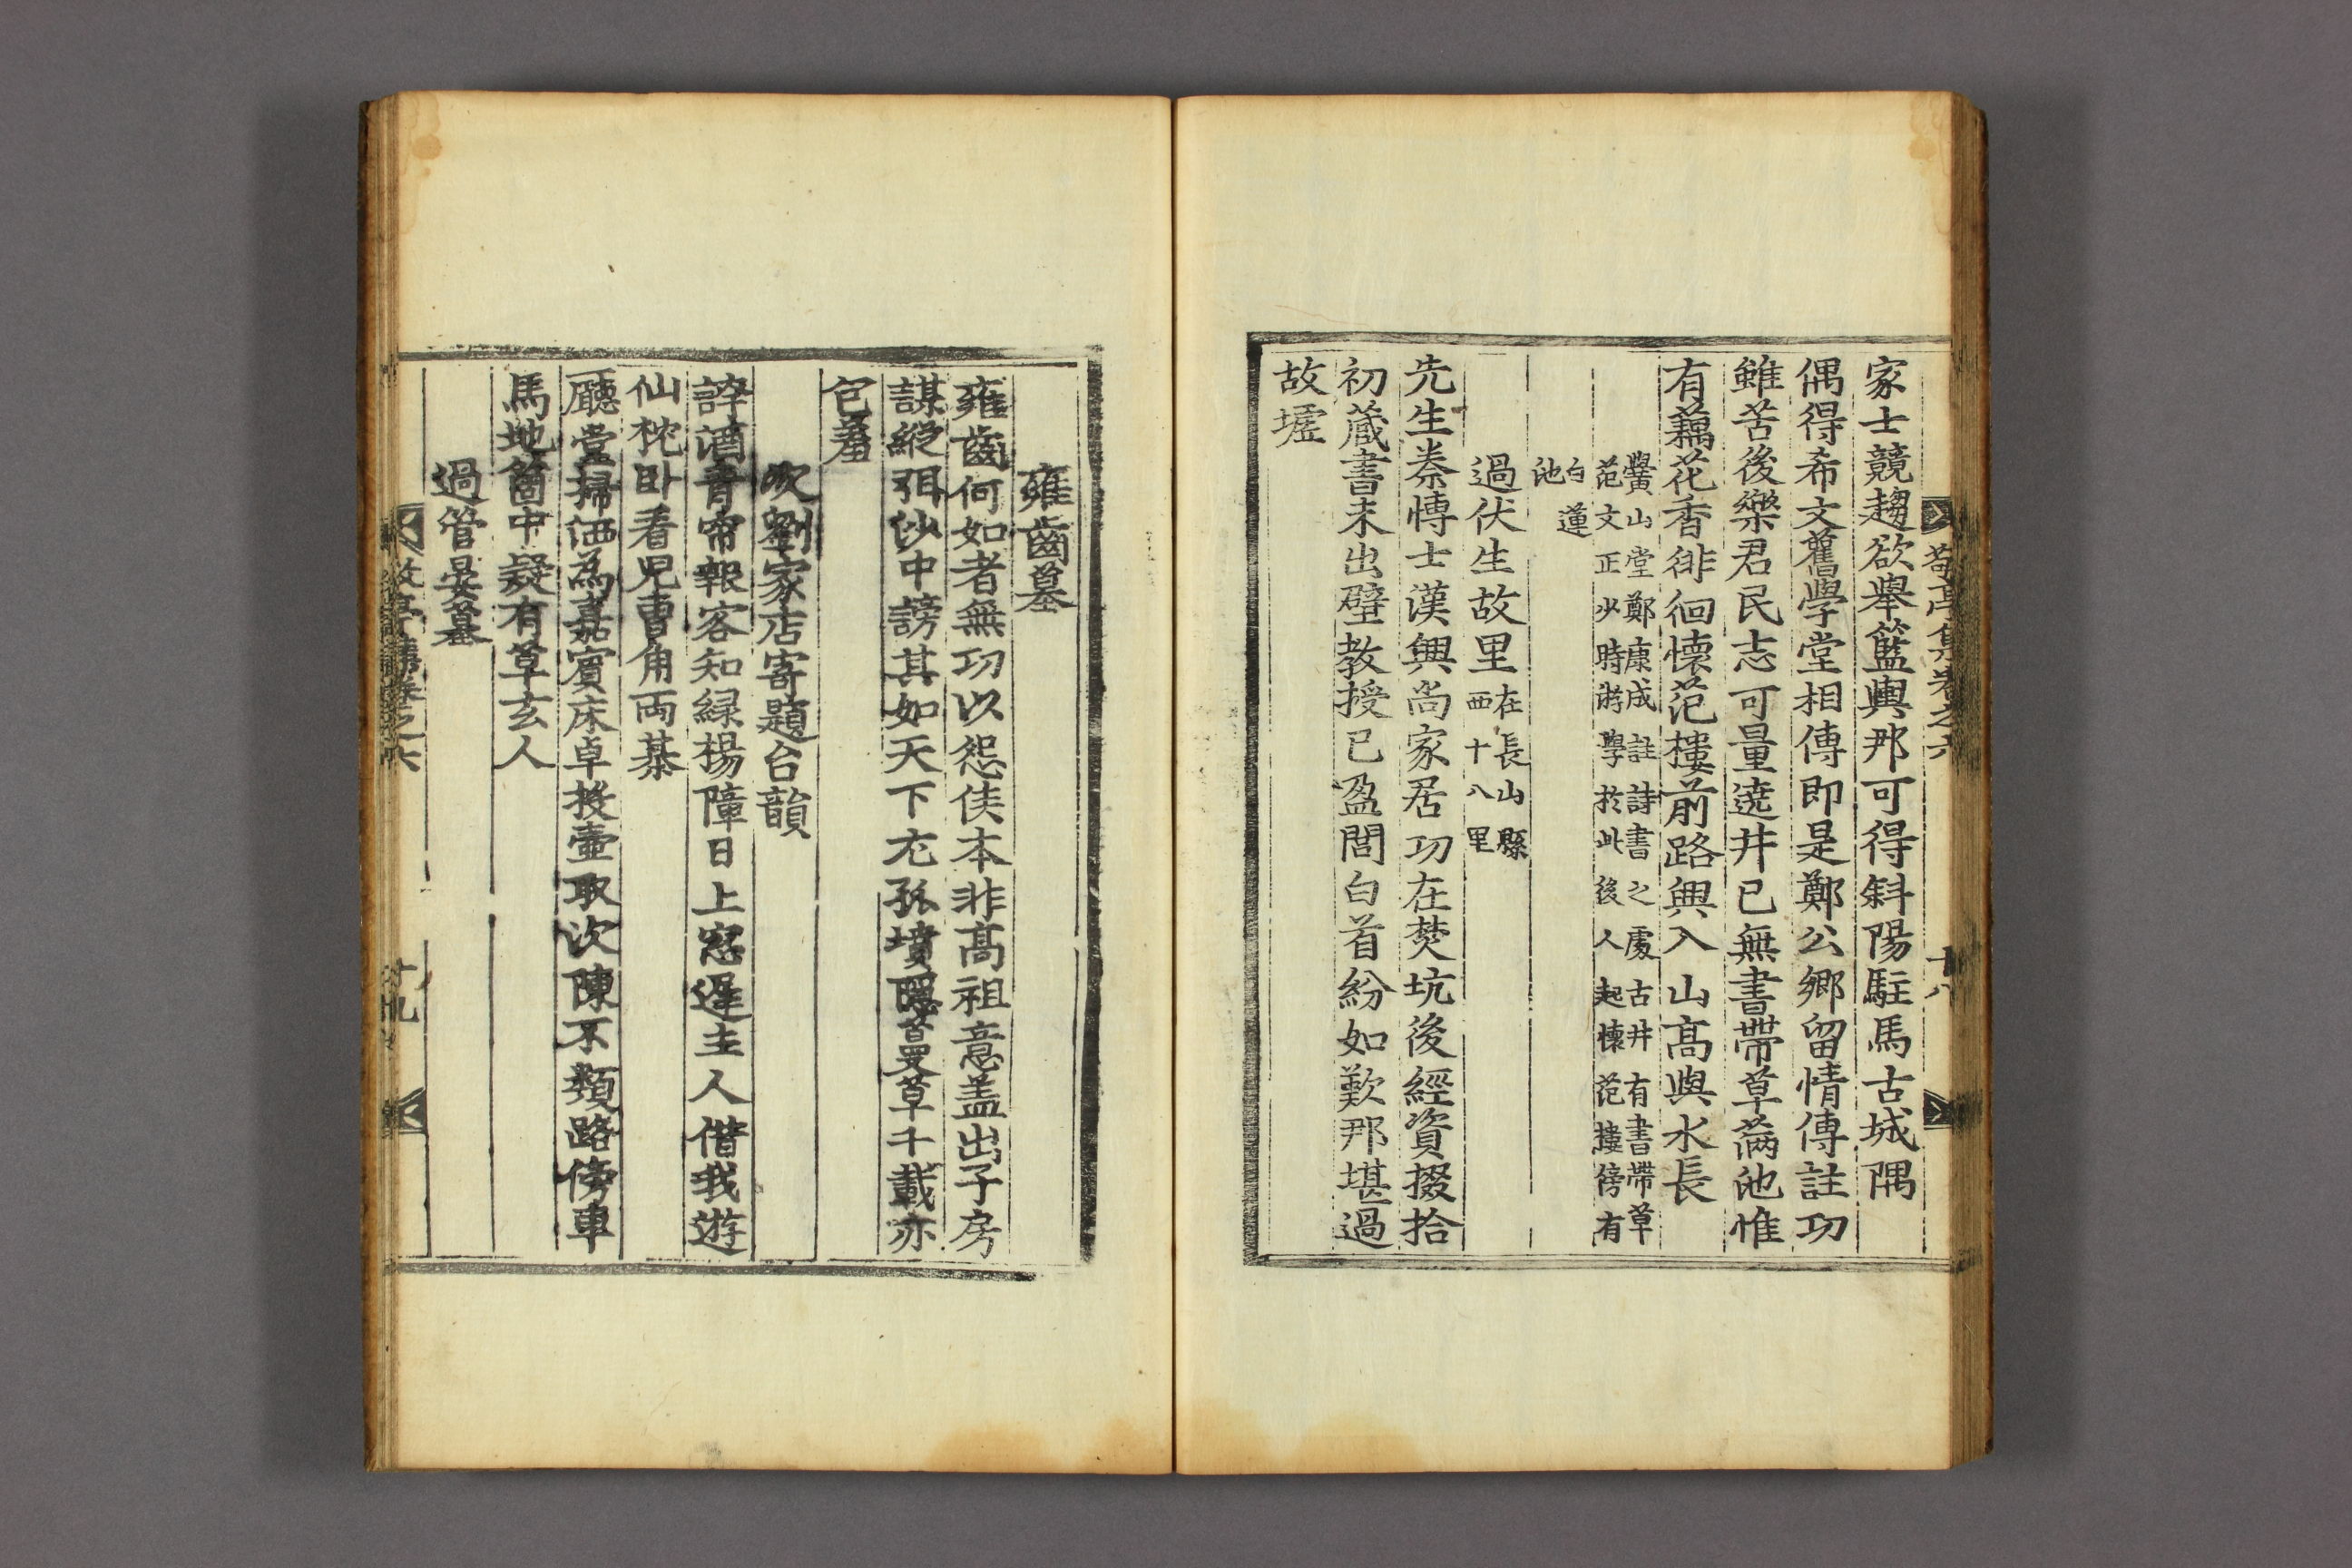 敬亭集卷之六
十八
家士競趨欲舉籃輿那可得斜陽駐馬古城隅
偶得希文舊學堂相傳即是鄭公鄉留情傳註功
雖苦後樂君民志可量遶井已無書帶草滿池惟
有藕花香徘徊懷范樓前路興入山高與水長
黌山堂鄭康成註詩書之處古井有書帶草
范文正少時游學於此後人起懷范樓傍有
白蓮
池
過伏生故里在長山縣
西十八里
先生秦博士漢興尚家居功在焚坑後經資掇拾
初藏書未出壁教授已盈閭白首紛如歎那堪過
故墟
雍齒墓
雍齒何如者無功以怨侯本非高祖意盖出子房
謀縱弭沙中謗其如天下尤孤墳隱蔓草千載亦
包羞
次劉家店寄題台韻
誶酒青帘報客知綠楊障日上窓遲主人借我遊
仙枕卧看兒曹角兩棊
廳堂掃洒為嘉賓床卓投壺取次陳不類路傍車
馬地箇中疑有草玄人
過管晏墓
敬亭集卷之六
十九